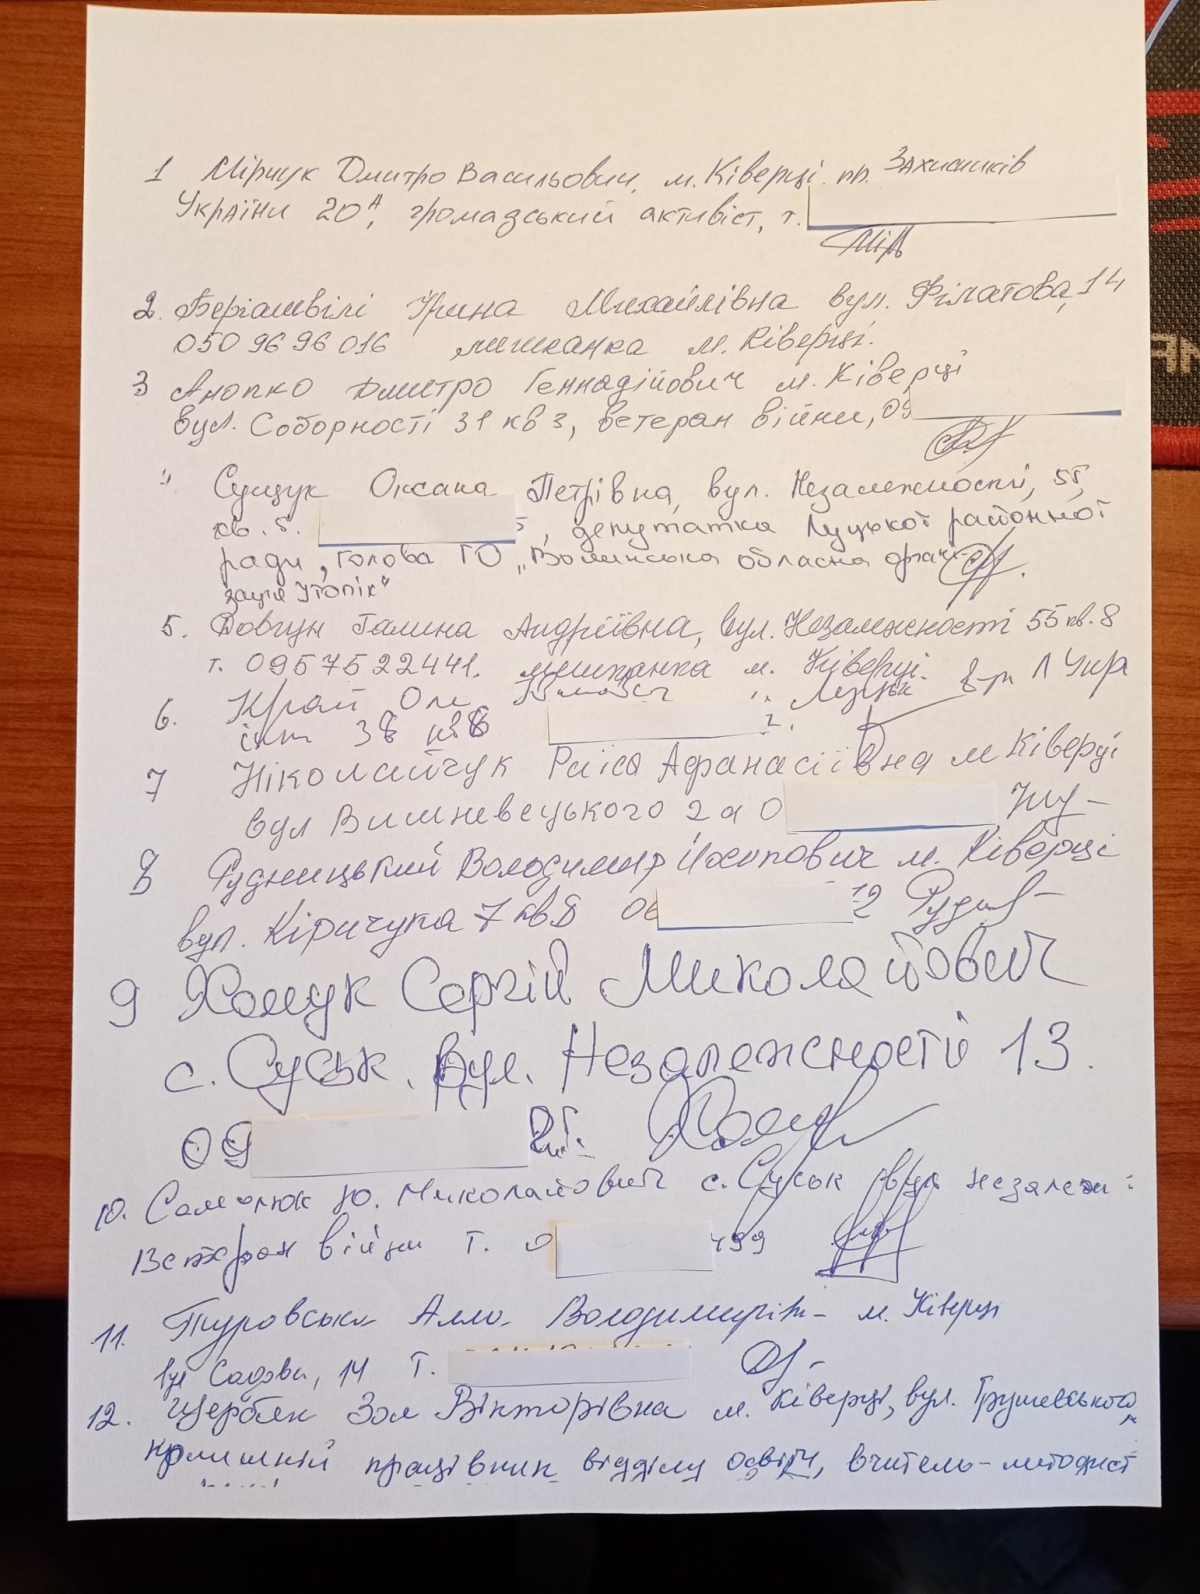 1 Мірчук Дмитро Васильович, м. Ківерці. пр. Захисників
України 20А, громадський активіст, т.
2. Беріашвілі Ірина Михайлівна вул. Філатова, 14
050 96 96 016 мешканка м. Ківерці.
3 Анопко Дмитро Геннадійович м. Ківерці
вул. Соборності 31 кв 3, ветеран війни, 09
4. Сущук Оксана Петрівна, вул. Незалежності, 55,
кв. 5. 5, депутатка Луцької районної
ради, голова ГО „Волинська обласна
зація Утопік"
5. Довгун Галина Андріївна, вул. Незалежності 55 кв. 8
т. 0957522441. мешканка м. Ківерці.
6. Край Оле Луцьк Л Укра
їнки 38
7 Ніколайчук Раїса Афанасіївна м Ківерці
вул Вишневецького 2а 0
8 Рудницький Володимир м. Ківерці
вул. Кіричука 7 кв 8 06
9 Хомук Сергій Миколайович
с. Суськ. вул. Незалежності 13.
09
10. Ю. Миколайович с. Суськ вул незалежн
Ветеран війни т. 0 499
11. Туровська Алла Володимирів- м. Ківерці
вул Садова, 14 т.
12. Щербак Зоя Вікторівна м. Ківерці, вул. Грушевського,
колишній працівник відділу освіти, вчитель-методист